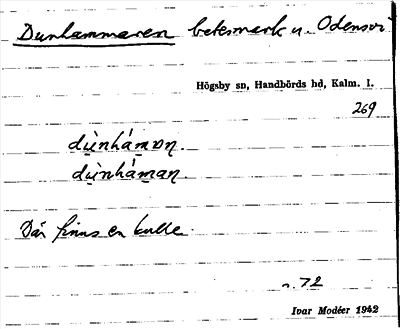 Dunhammaren betesmark u. Odensvi
Högsby sn, Handbörds hd, Kalm. l.
269
dùnháman.
dùnháman.
Där finns en kulle.
72
Ivar Modéer 1942